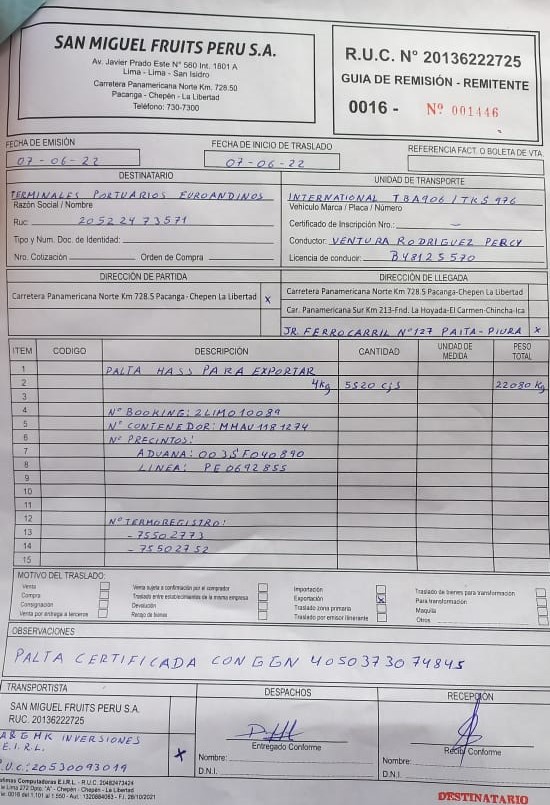 SAN MIGUEL FRUITS PERU S.A.
Av. Javier Prado Este N° 560 Int. 1801 A
Lima - Lima - San Isidro
Carretera Panamericana Norte Km. 728.50
Pacanga - Chepén - La Libertad
Teléfono: 730-7300
R.U.C. N° 20136222725
GUIA DE REMISIÓN - REMITENTE
0016 - Nº 001446
FECHA DE EMISIÓN
07-06-22
FECHA DE INICIO DE TRASLADO
07-06-22
REFERENCIA FACT. O BOLETA DE VTA.
DESTINATARIO
TERMINALES PORTUARIOS EUROANDINOS
Razón Social / Nombre
Ruc: 20522473571
Tipo y Num. Doc. de Identidad:
Nro. Cotización Orden de Compra
UNIDAD DE TRANSPORTE
INTERNATIONAL TBA906 / TKS 976
Vehículo Marca / Placa / Número
Certificado de Inscripción Nro.: -
Conductor: VENTURA RODRIGUEZ PERCY
Licencia de conducir: B48125570
DIRECCIÓN DE PARTIDA
Carretera Panamericana Norte Km 728.5 Pacanga-Chepen La Libertad X
DIRECCIÓN DE LLEGADA
Carretera Panamericana Norte Km 728.5 Pacanga-Chepen La Libertad
Car. Panamericana Sur Km 213-Fnd. La Hoyada-El Carmen-Chincha-Ica
JR. FERROCARRIL Nº127 PAITA-PIURA X
ITEM CODIGO DESCRIPCIÓN CANTIDAD UNIDAD DE MEDIDA PESO TOTAL
1 PALTA HASS PARA EXPORTAR
2 4Kg 5520 cjs 22080 Kg
3
4 Nº BOOKING: 2LIMO10089
5 Nº CONTENEDOR: MMAU1181274
6 Nº PRECINTOS:
7 ADUANA: 003SF040890
8 LINEA: PE0692855
9
10
11
12 Nº TERMOREGISTRO:
13 - 75502773
14 - 75502752
15
MOTIVO DEL TRASLADO:
Venta
Compra
Consignación
Venta por entrega a terceros
Venta sujeta a confirmación por el comprador
Traslado entre establecimientos de la misma empresa
Devolución
Recojo de bienes
Importación
Exportación X
Traslado zona primaria
Traslado por emisor itinerante
Traslado de bienes para transformación
Para transformación
Maquila
Otros
OBSERVACIONES
PALTA CERTIFICADA CON GGN 4050373074845
TRANSPORTISTA
SAN MIGUEL FRUITS PERU S.A.
RUC. 20136222725
A&GHK INVERSIONES
E.I.R.L. X
R.U.C: 20530093019
DESPACHOS
Entregado Conforme
Nombre:
D.N.I.
RECEPCIÓN
Recibí Conforme
Nombre:
D.N.I.
Computadoras E.I.R.L. - R.U.C. 20482473424
DESTINATARIO